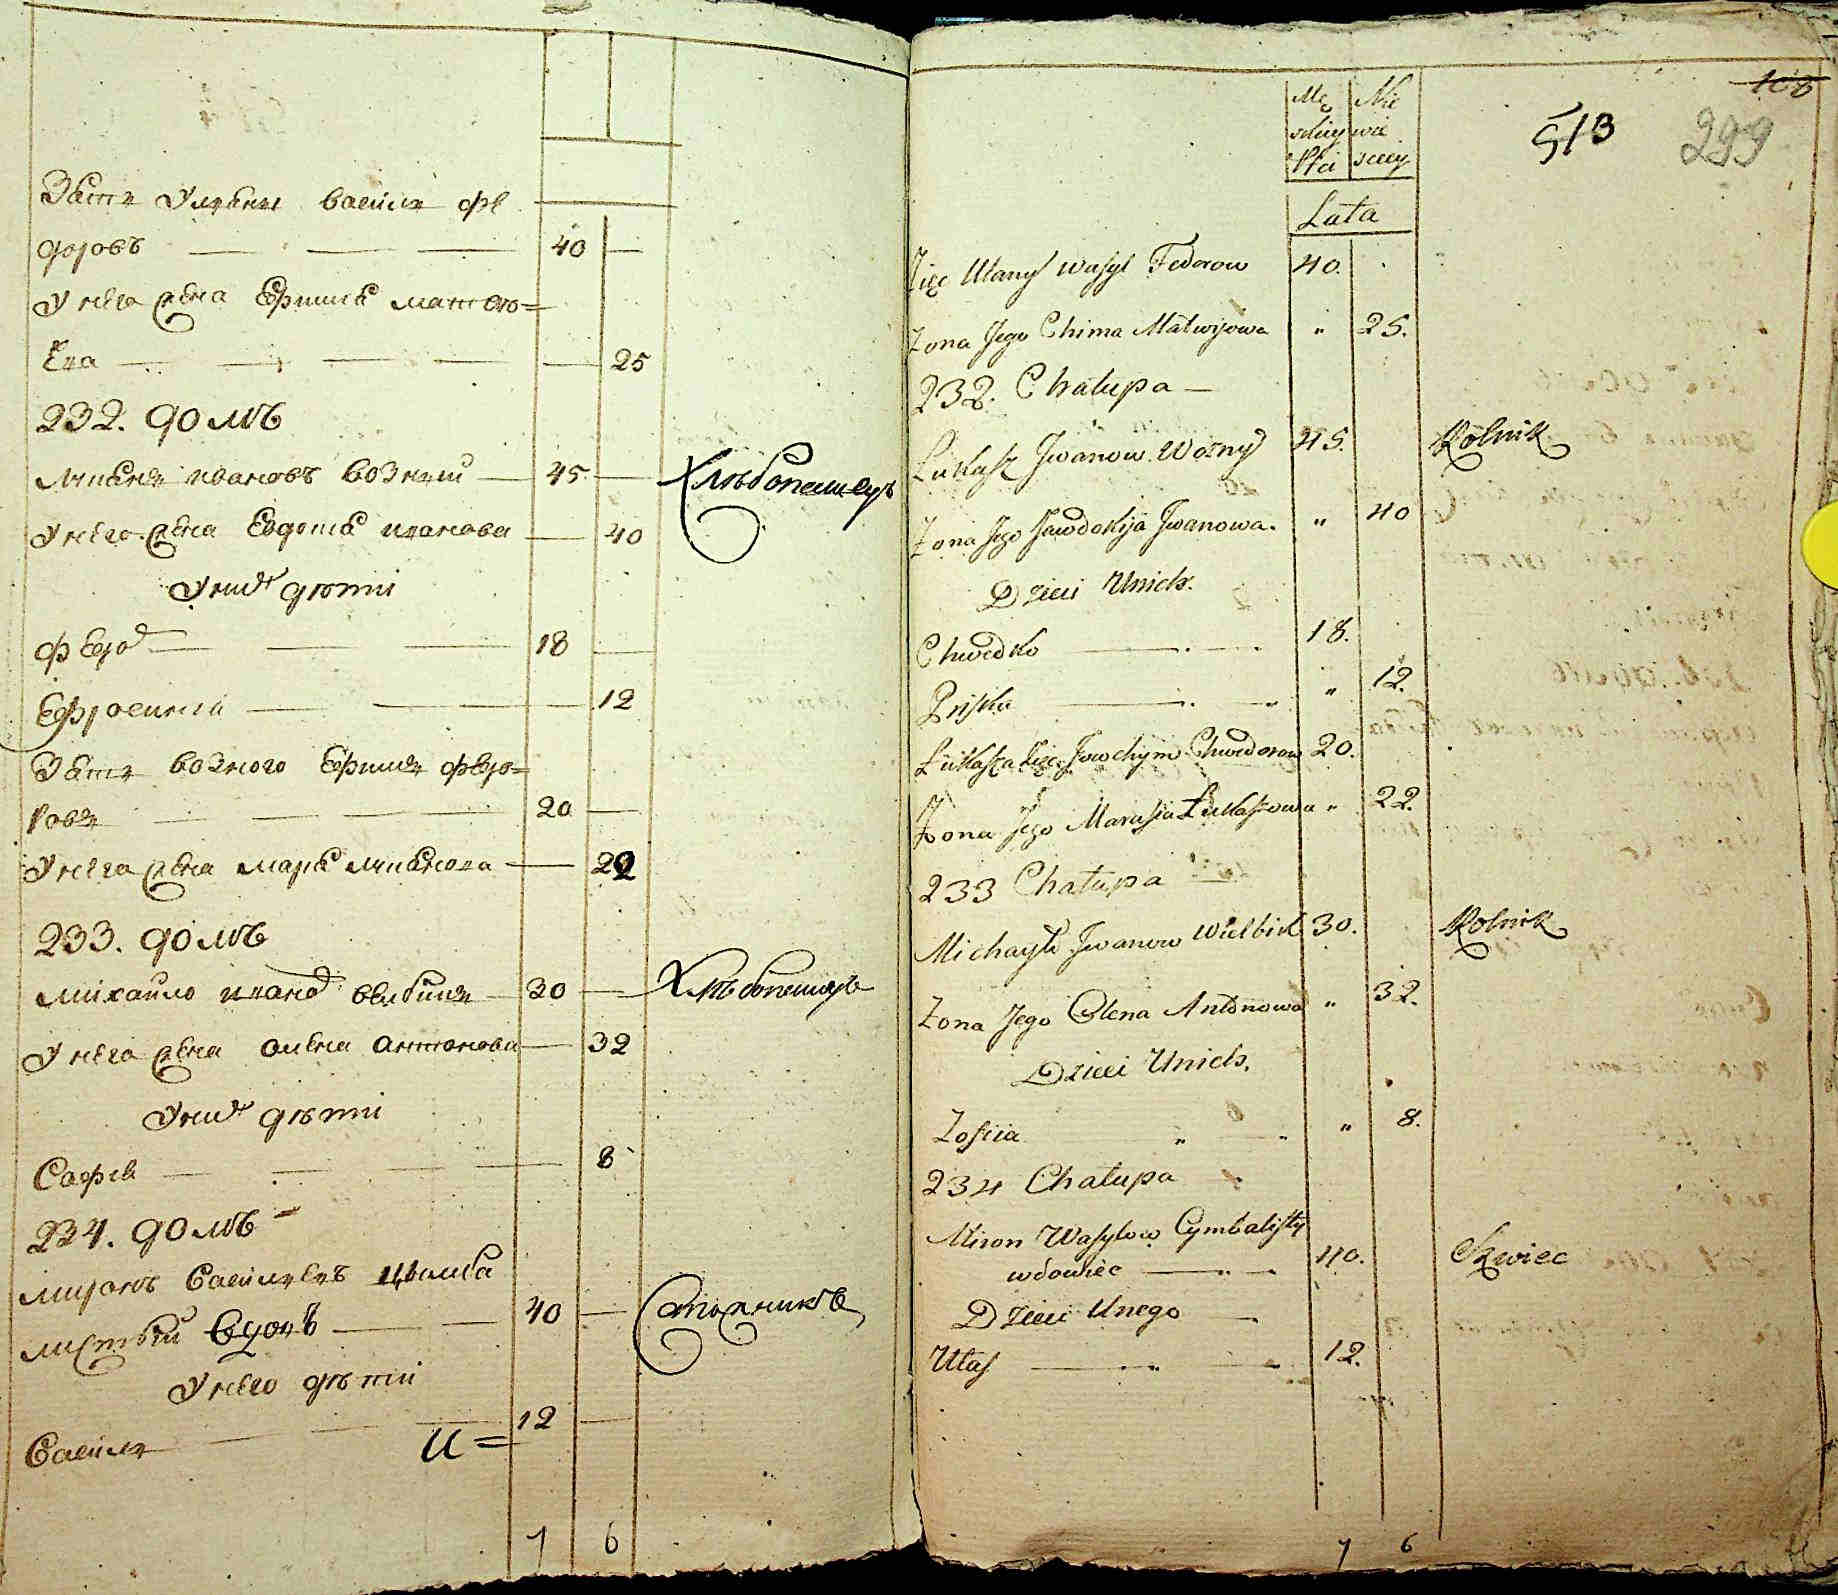 Зать Улыяны василь фе
доровъ — — — 40 —
У него жена Ефимiа матвѣ=
ева — — — — 25
232. домъ
лукянъ ивановъ возный — 45 — Хлѣбопашецъ
У него жена Евдокiа иванова — 40
У них дѣтiи
Федор — — — 18 —
Ефросинiа — — — 12
Зать возного Ефимъ федо=
ровъ — — — 20 —
У него жена марiа лукянова — 22
233. домъ
михайло иванов велбицкъ — 30 — Хлѣбопашецъ
У него жена олена антонова — 32
У них дѣтiи
Софiа — — — — 8
234. домъ
миронъ Василiевъ цымба
листый вдовъ — — 40 — Сапожникъ
У него дѣтiи
Василь — — — 12 —
И=
7 6
108
513 299
Mę
skiey
Płci
Nie
wie
sciey
Lata
Zięć Ułany Wasyl Fedorow 40.
Zona Jego Chima Matwijowa " 25.
232. Chałupa —
Łukasz Jwanow Wozny 45. Rolnik
Zona Jego Jawdokija Jwanowa. " 40
Dzieci Unich.
Chwedko — — 18.
Pryska — — " 12.
Łukasza Zięć Jowchym Chwedorow 20.
Zona Jego Marusia Łukaszowa " 22.
233 Chałupa —
Michayło Jwanow Wielbick 30. Rolnik
Zona Jego Olena Antonowa " 32.
Dzieci Unich.
Zofiia " — " 8.
234 Chałupa
Miron Wasylow Cymbalisty
wdowiec — — 40. Szwiec
Dzieci Unego —
Wasyl — — 12.
7 6